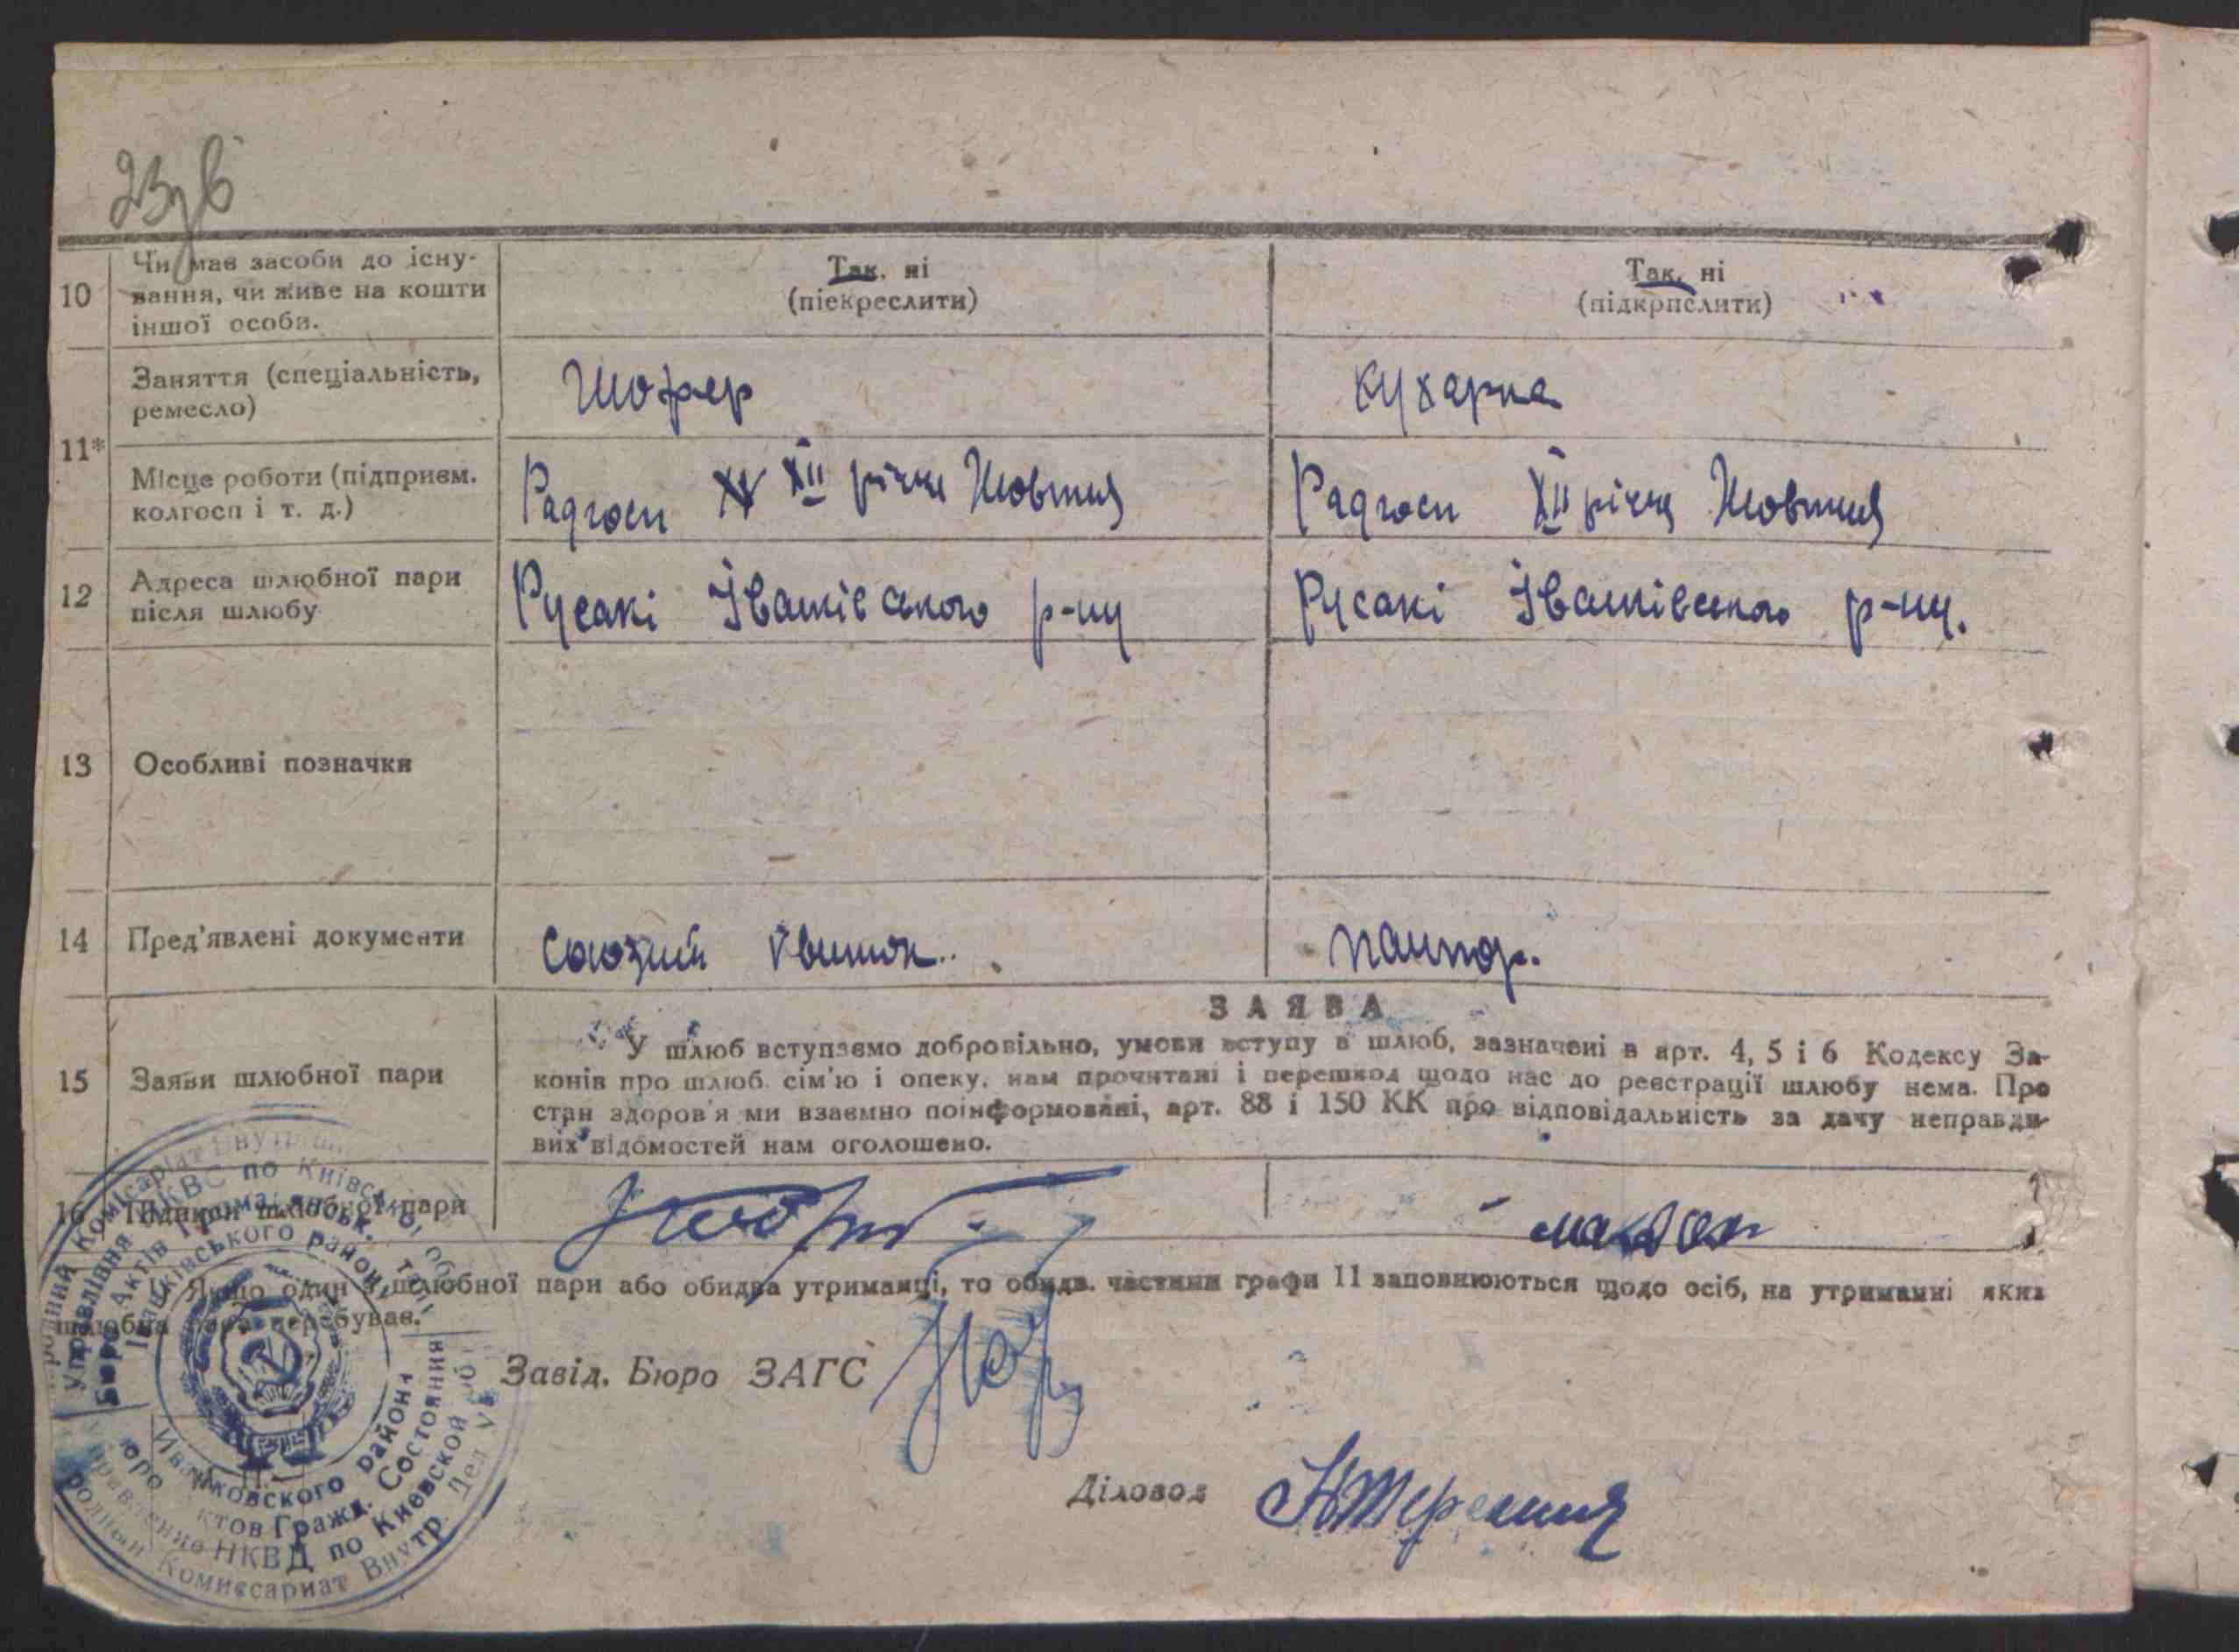 23зв
10 Чи має засоби до існу-
вання, чи живе на кошти
іншої особи.
Так, ні
(піекреслити)
Так, ні
(підкрпслити)
11*
Заняття (спеціальність,
ремесло)
Шофер
Кухарка
Місце роботи (підприєм.
колгосп і т. д.)
Радгосп XII річча Жовтня
Радгосп XII річча Жовтня
12 Адреса шлюбної пари
після шлюбу
Русакі Іванківського р-ну
Русакі Іванківського р-ну.
13 Особливі позначки
14 Пред'явлені документи
Союзний квиток..
паспор.
15 Заяви шлюбної пари
ЗАЯВА
У шлюб вступаємо добровільно, умови вступу в шлюб, зазначені в арт. 4, 5 і 6 Кодексу За-
конів про шлюб. сім'ю і опеку. нам прочитані і перешкод щодо нас до реєстрації шлюбу нема. Про
стан здоров'я ми взаємно поінформовані, арт. 88 і 150 КК про відповідальність за дачу неправди-
вих відомостей нам оголошено.
16 Підписи шлюбної пари
Якщо один з шлюбної пари або обидва утриманці, то обидв. частини графи 11 заповнюються щодо осіб, на утриманні яких
шлюбна пара перебуває.
Завід. Бюро ЗАГС
Діловод
Управління НКВС по Київській обл.
Бюро Актів Громадянськ. Стану
Іванківського району
Иванковского района
Бюро Актов Гражд. Состояния
Управление НКВД по Киевской обл
Народный Комиссариат Внутр. Дел